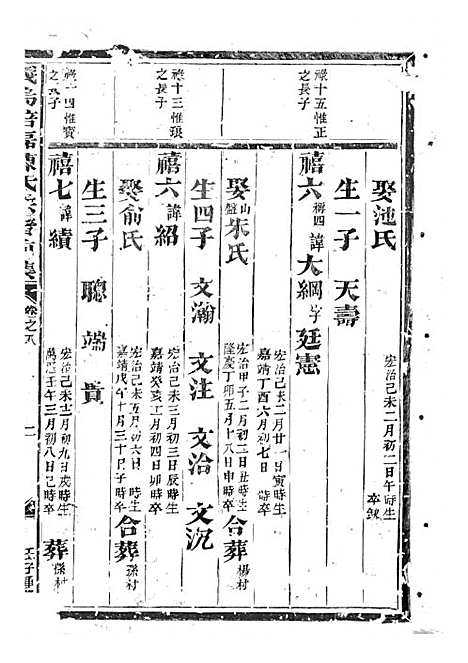 娶池氏 宏治己未二月初二日午時生 卒缺
生一子 天壽
祿十五惟正之長子
禧六 行四 諱大綱字廷憲 宏治己未二月廿一日寅時生
嘉靖丁酉六月初七日 時卒
娶盤山朱氏 宏治甲子二月初三日丑時生 隆慶丁卯五月十八日申時卒 合葬楊村
生四子 文瀚 文注 文治 文沉
祿十三惟琅之長子
禧六 諱紹 宏治己未三月初三日辰時生 嘉靖癸亥十一月初四日卯時卒
娶俞氏 宏治己未五月初六日 時生 嘉靖戊午十月三十日子時卒 合葬孫村
生三子 聰 端 貴
祿十四惟寶之長子
禧七 諱績 宏治己未十二月初九日戌時生 萬歷壬午三月初八日己時卒 葬孫村
陳氏宗譜 卷之八 二 壬子重